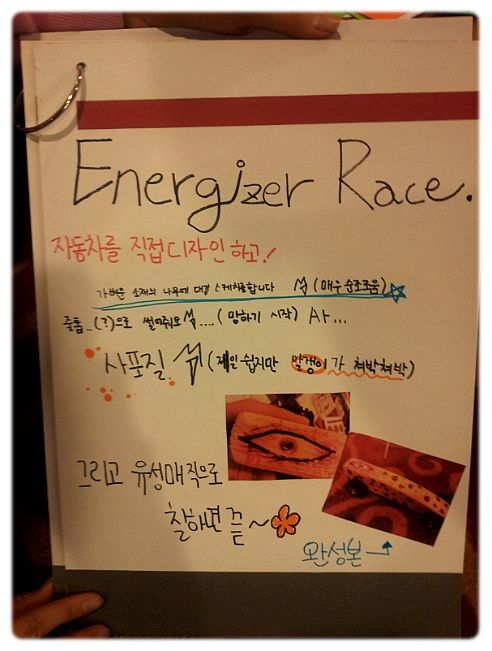 Energizer Race.
자동차를 직접디자인 하고!
가벼운 소재의 나무에 대강 스케치를합니다 (매우 순조로움)
줄톱..(?)으로 썰어줘요 .... (망하기 시작) Ar...
사포질 (제일 쉽지만 알갱이가 쳐박쳐박)
그리고 유성매직으로
칠하면 끝~
완성본